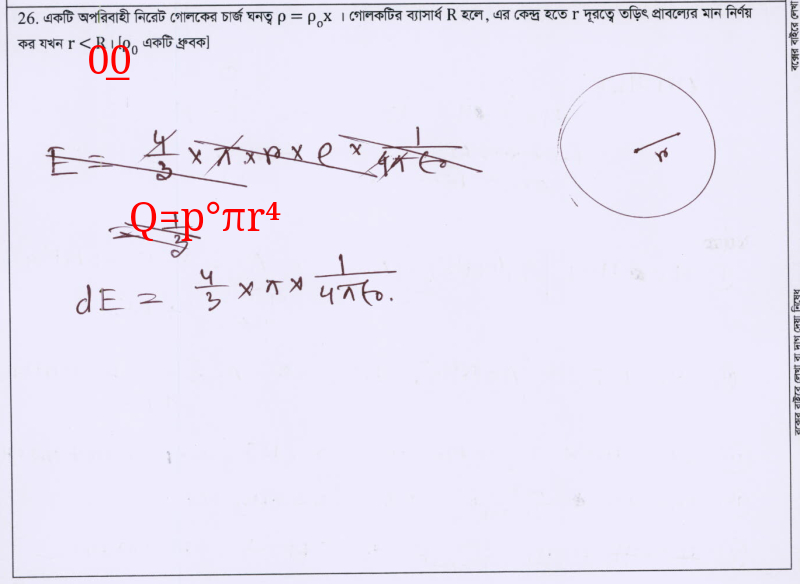 26. একটি অপরিবাহী নিরেট গোলকের চার্জ ঘনত্ব ρ = ρ₀x । গোলকটির ব্যাসার্ধ R হলে, এর কেন্দ্র হতে r দূরত্বে তড়িৎ প্রাবল্যের মান নির্ণয়
কর যখন r < R । [ρ₀ একটি ধ্রুবক]
00
E = 4/3 × π × r × ρ × 1/4πε₀
Q=p°πr⁴
dE = 4/3 × π × 1/4πε₀.
r
বাক্সের বাইরে লেখা বা দাগ দেয়া নিষেধ